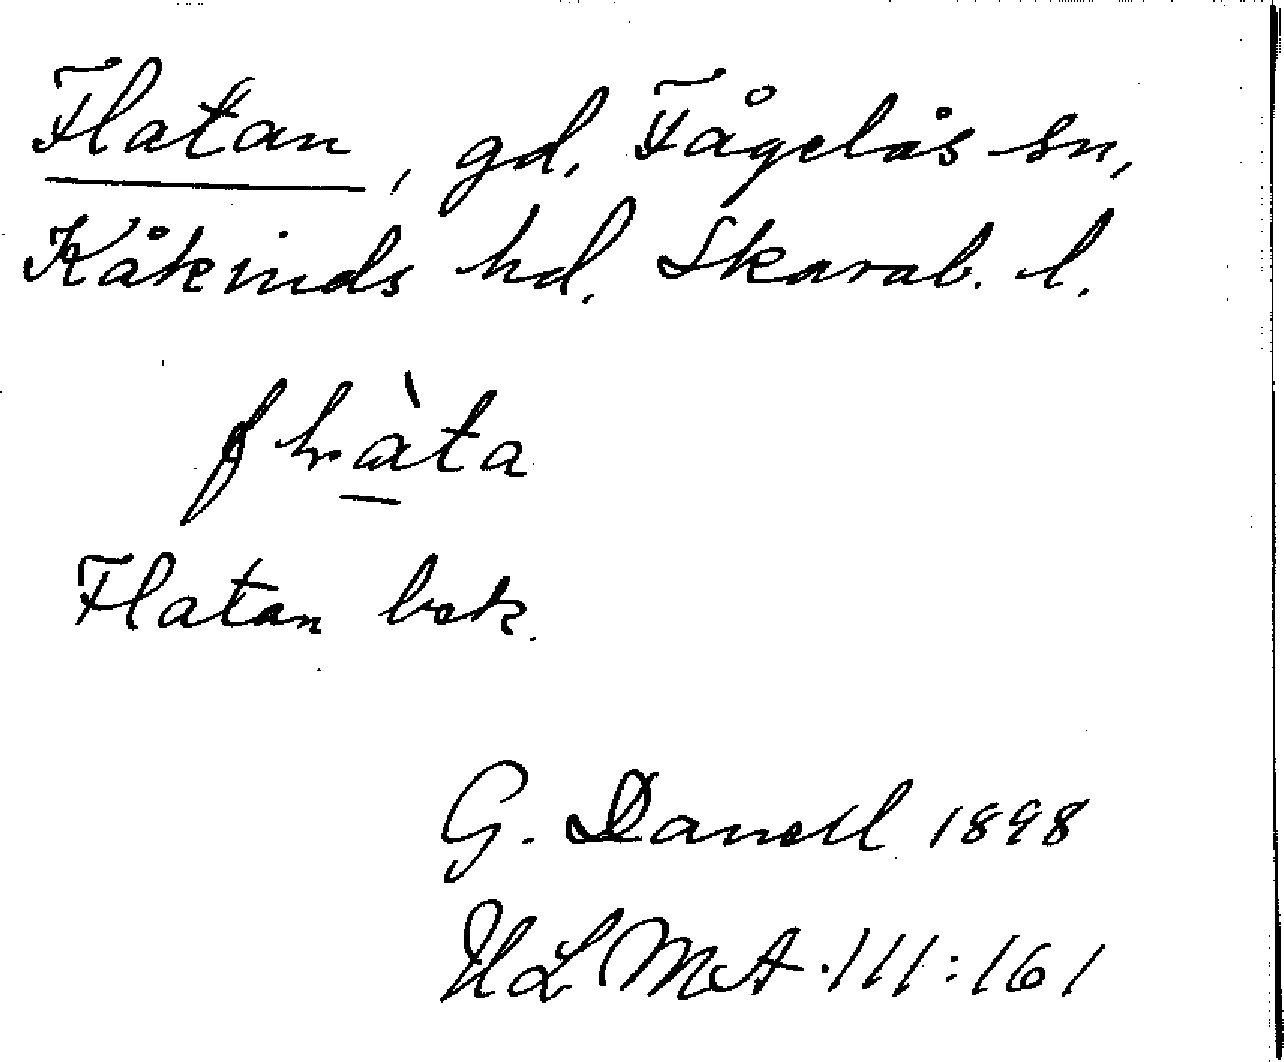 Flatan, gd, Fågelås sn,
Kåkinds hd, Skarab. l.
Flatan bok.
G. Danell 1898
ULMA 111:161